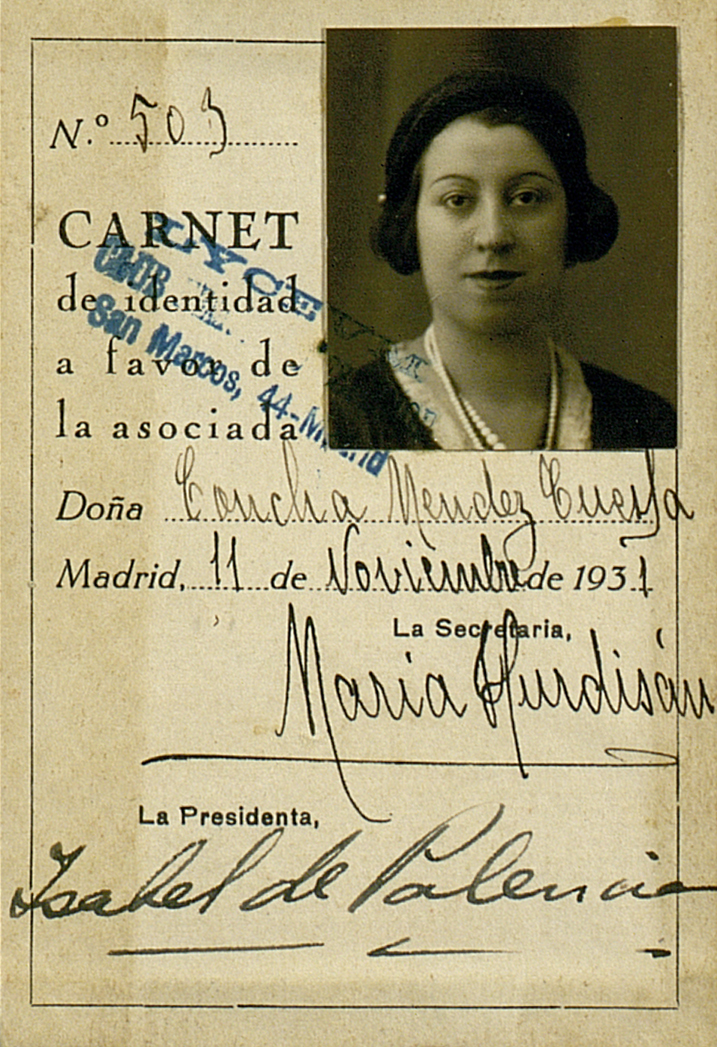 N.º 503
CARNET
de identidad
a favor de
la asociada
LYCEUM
CLUB
San Marcos, 44-Madrid
Doña Concha Mendez Cuesta
Madrid, 11 de Noviembre de 1931
La Secretaria,
Maria Hurdisán
La Presidenta,
Isabel de Palencia